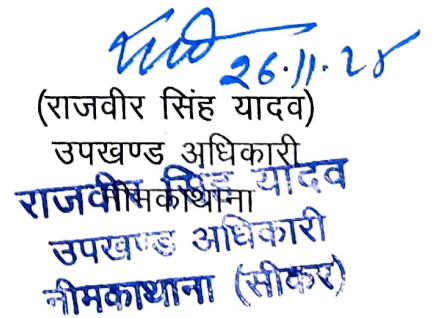 26.11.24
(राजवीर सिंह यादव)
उपखण्ड अधिकारी
नीमकाथाना
राजवीर सिंह यादव
उपखण्ड अधिकारी
नीमकाथाना (सीकर)